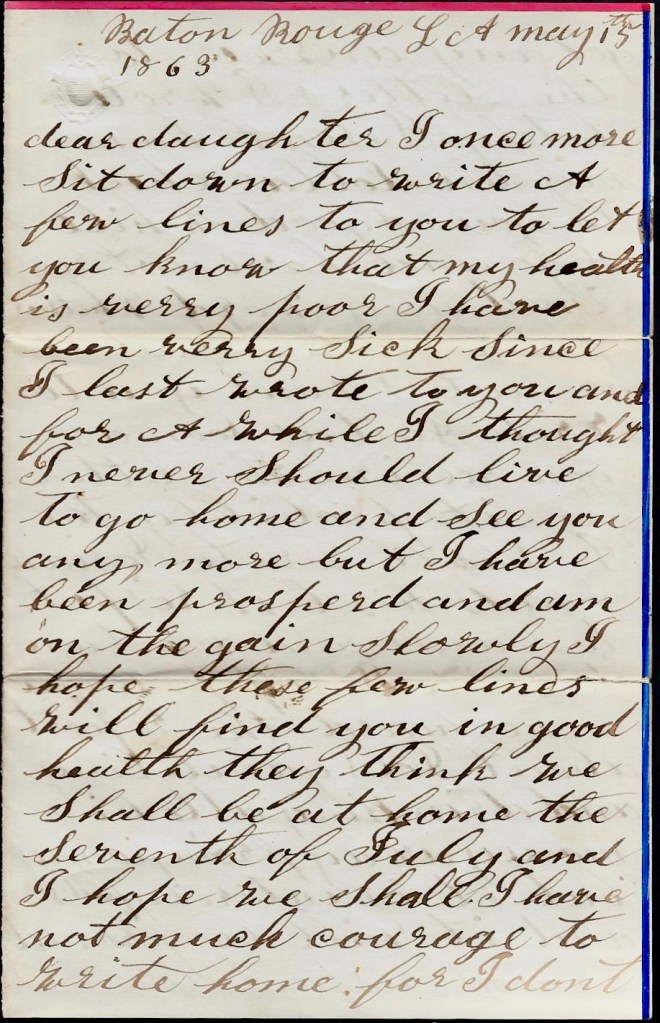 Baton Rouge LA may 15th
1863
dear daughter I once more
Sit down to write A
few lines to you to let
you know that my health
is verry poor I have
been verry Sick Since
I last wrote to you and
for A while I thought
I never Should live
to go home and See you
any more but I have
been prosperd and am
on the gain Slowly I
hope these few lines
will find you in good
health they think we
Shall be at home the
Seventh of July and
I hope we Shall. I have
not much courage to
write home for I dont